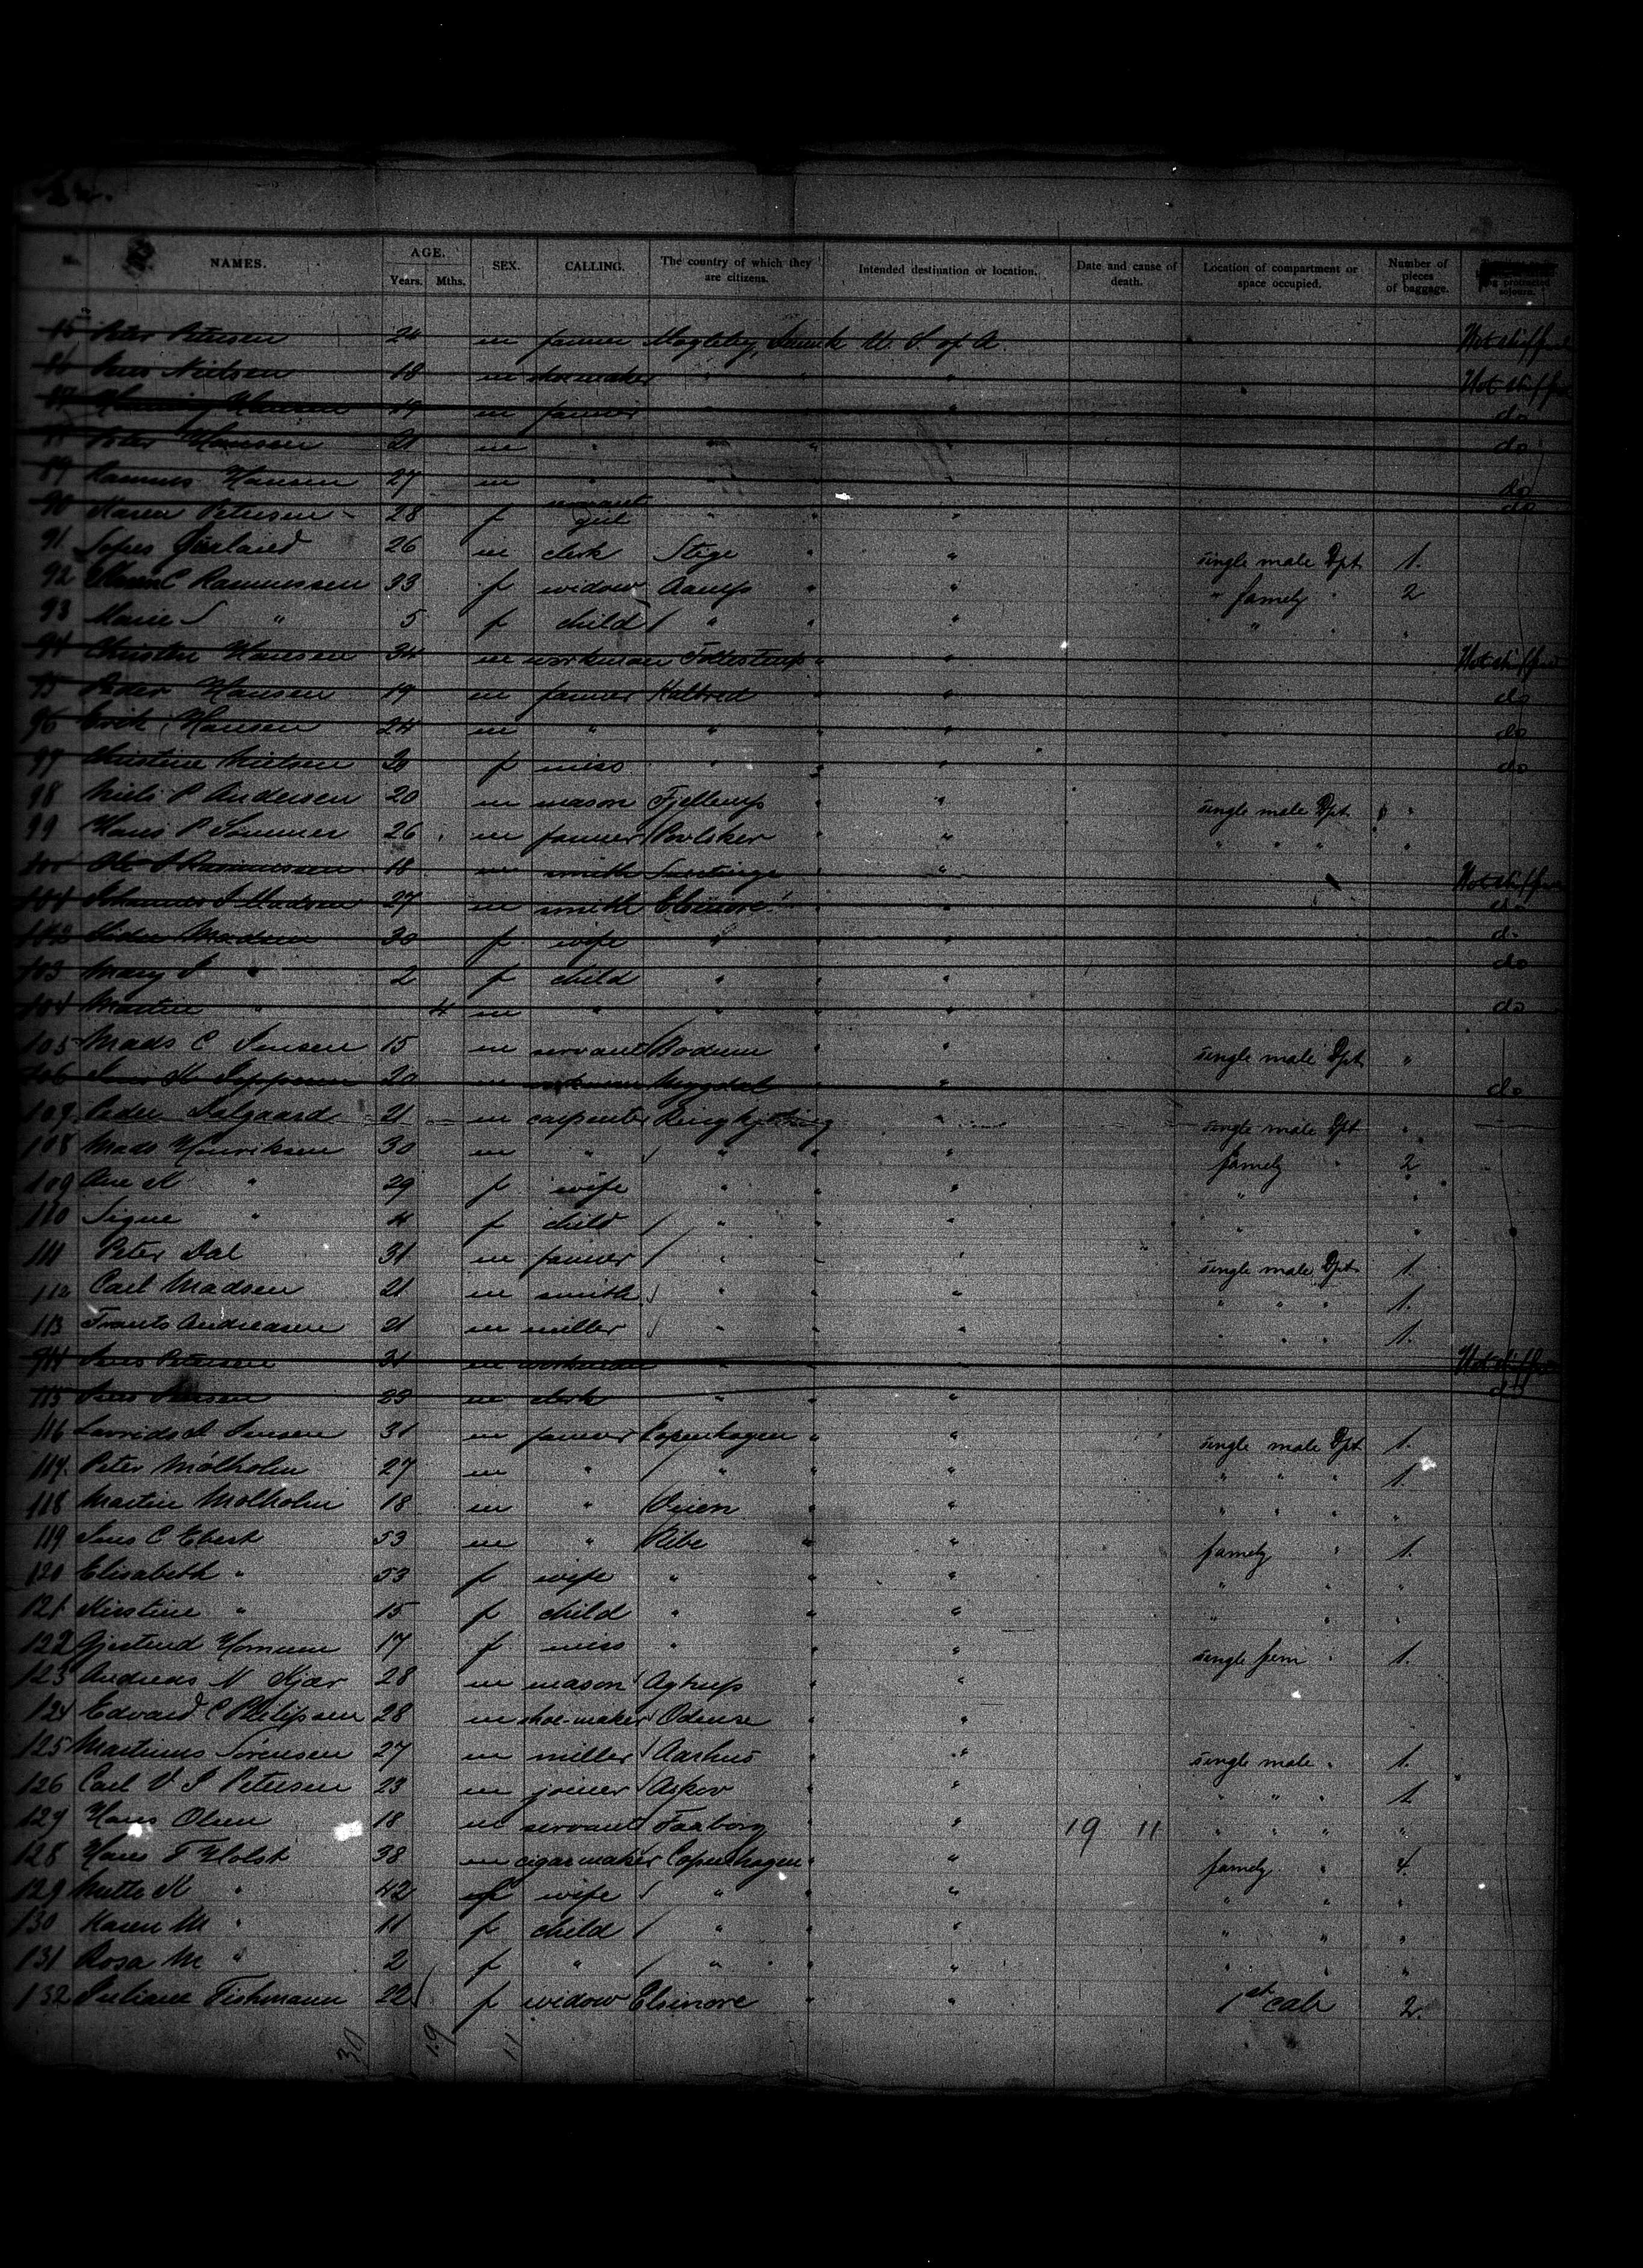 No. NAMES. AGE. Years. Mths. SEX. CALLING. The country of which they are citizens. Intended destination or location. Date and cause of death. Location of compartment or space occupied. Number of pieces of baggage. sojourn.
85 Peter Petersen 24 m farmer Magleby, Danmk U. S. of A. Not shipped
86 Jens Nielsen 18 m shoemaker " " " Not shipped
87 Henning Hansen 19 m farmer " " do
88 Peter Hansen 21 m " " " " do
89 Rasmus Hansen 27 m " " " do
90 Karen Petersen 28 f servant girl " " " do
91 Sofus 26 m clerk Stege " " single male Dpt 1.
92 C Rasmussen 33 f widow Aarup " " " family " 2
93 Marie S " 5 f child " " " " " "
94 Christen Hansen 34 m workman " " Not shipped
95 Peder Hansen 19 m farmer Kaldred " " do
96 Erik Hansen 24 m " " " " do
97 Christine Nielsen 20 f miss " " " do
98 Niels P Andersen 20 m mason Fjellerup " " single male Dpt "
99 Hans P Sommer 26 m farmer Povlsker " " " " " "
100 Ole S Rasmussen 18 m smith " Not shipped
101 Johannes S Madsen 27 m smith Elsinore " " do
102 Madsen 30 f wife " " " do
103 Mary S " 2 f child " " " do
104 Martin " 4 m " " " " do
105 Mads C Jensen 15 m servant Bodum " " single male Dpt "
106 Jens K Jeppesen 20 m workman " " do
107 Peder Dalgaard 21 m carpenter Ringkjöbing " single male Dpt "
108 Mads Henriksen 30 m " " " " family " 2
109 Ane K " 29 f wife " " " " "
110 Signe " 4 f child " " " " "
111 Peter Dal 31 m farmer " " " single male Dpt 1.
112 Carl Madsen 21 m smith " " " " " " 1.
113 Frants Andreasen 21 m miller " " " " " " 1.
114 Jens Petersen 31 m workman " " " Not shipped
115 Jens Jensen 23 m clerk " " " do
116 Lavrids A Jensen 31 m farmer Copenhagen " " single male Dpt 1.
117. Peter Mölholm 27 m " " " " " " " 1.
118 Martin Mölholm 18 m " Veien " " " " " "
119 Jens C Ebert 53 m " Ribe " " family " 1.
120 Elisabeth " 53 f wife " " " " " "
121 Kirstine " 15 f child " " " " " "
122 Gjertrud Hornum 17 f miss " " " single fem " 1.
123 Andreas N Kjær 28 m mason Agtrup " "
124 Edvard C Philipsen 28 m shoe-maker Odense " "
125 Martinus Sörensen 27 m miller Aarhus " " single male " 1.
126 Carl V. S Petersen 23 m joiner Askov " " " " " 1
127 Hans Olsen 18 m servant Faaborg " " 19 11 " " " "
128 Hans F Holst 38 m cigarmaker Copenhagen " " family " 4.
129 Mette K " 42 f wife " " " " " "
130 Karen M " 11 f child " " " " " "
131 Rosa M " 2 f " " " " " " "
132 Juliane Fishmann 22 f widow Elsinore " " 1st cab 2.
30 19 11